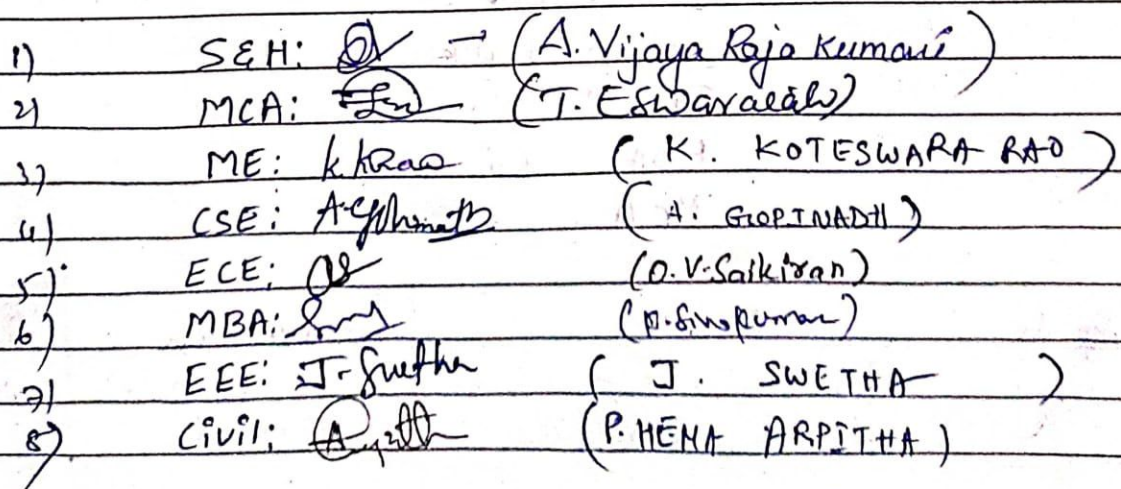 1) S&H: - (A. Vijaya Raja Kumari)
2) MCA: (T. Eswara)
3) ME: K. KRao (K. KOTESWARA RAO)
4) CSE: A. Gopinath (A. GOPINADH)
5) ECE: (O.V. Saikiran)
6) MBA:
7) EEE: J. Swetha (J. SWETHA)
8) Civil: (P. HEMA ARPITHA)